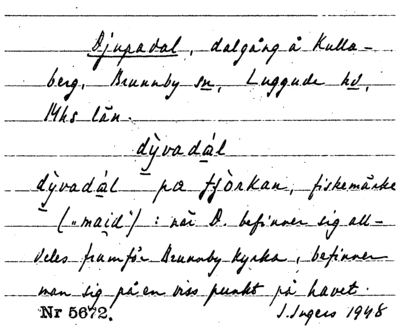 Djupadal, dalgång å Kulla-
berg, Brunnby sn, Luggude hd,
Mhs län.
dỳvadál
dỳvadál pa fjörkan, fiskemärke
("maid"): när D. befinner sig all-
deles framför Brunnby kyrka, befinner
man sig på en viss punkt på havet.
Nr 5672. I. Ingers 1948